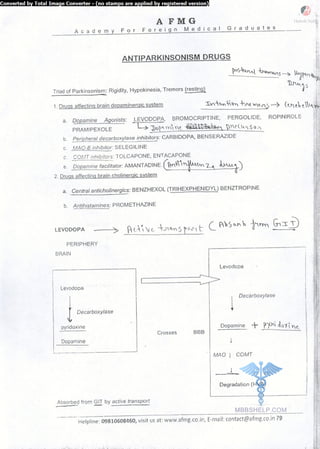 Converted by Total Image Converter - (no stamps are applied by registered version)
A F M G
Academy For Foreign Medical Graduates
ANTIPARKINSONISM DRUGS
postural tremors →
Drugs
Triad of Parkinsonism: Rigidity, Hypokinesia, Tremors (resting)
1. Drugs affecting brain dopaminergic system
Intention tremors →
a. Dopamine Agonists: LEVODOPA, BROMOCRIPTINE, PERGOLIDE, ROPINIROLE
PRAMIPEXOLE
↳ Dopamine precursor
b. Peripheral decarboxylase inhibitors: CARBIDOPA, BENSERAZIDE
c. MAO B inhibitor: SELEGILINE
c. COMT inhibitors: TOLCAPONE; ENTACAPONE
e. Dopamine facilitator: AMANTADINE (Antiinfluenza drug)
2. Drugs affecting brain cholinergic system
a. Central anticholinergics: BENZHEXOL (TRIHEXPHENIDYL) BENZTROPINE
b. Antihistamines: PROMETHAZINE
LEVODOPA → Active transport ( Absorb from GIT)
PERIPHERY
BRAIN
Levodopa
Levodopa
Decarboxylase
Decarboxylase
pyridoxine
Dopamine + pyridoxine
Crosses BBB
Dopamine
MAO | COMT
Degradation
Absorbed from GIT by active transport
MBBSHELP.COM
Helpline: 09810608460, visit us at: www.afmg.co.in; E-mail: contact@afmg.co.in 79